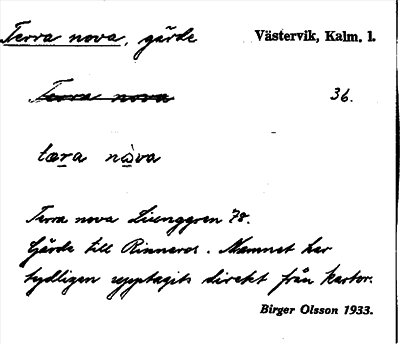 Terra nova, gärde Västervik, Kalm. l.
Terra nova 36.
tæra nòva
Terra nova Liunggren 78.
Gärde till Rinneros. Namnet har
tydligen upptagits direkt från kartor.
Birger Olsson 1933.